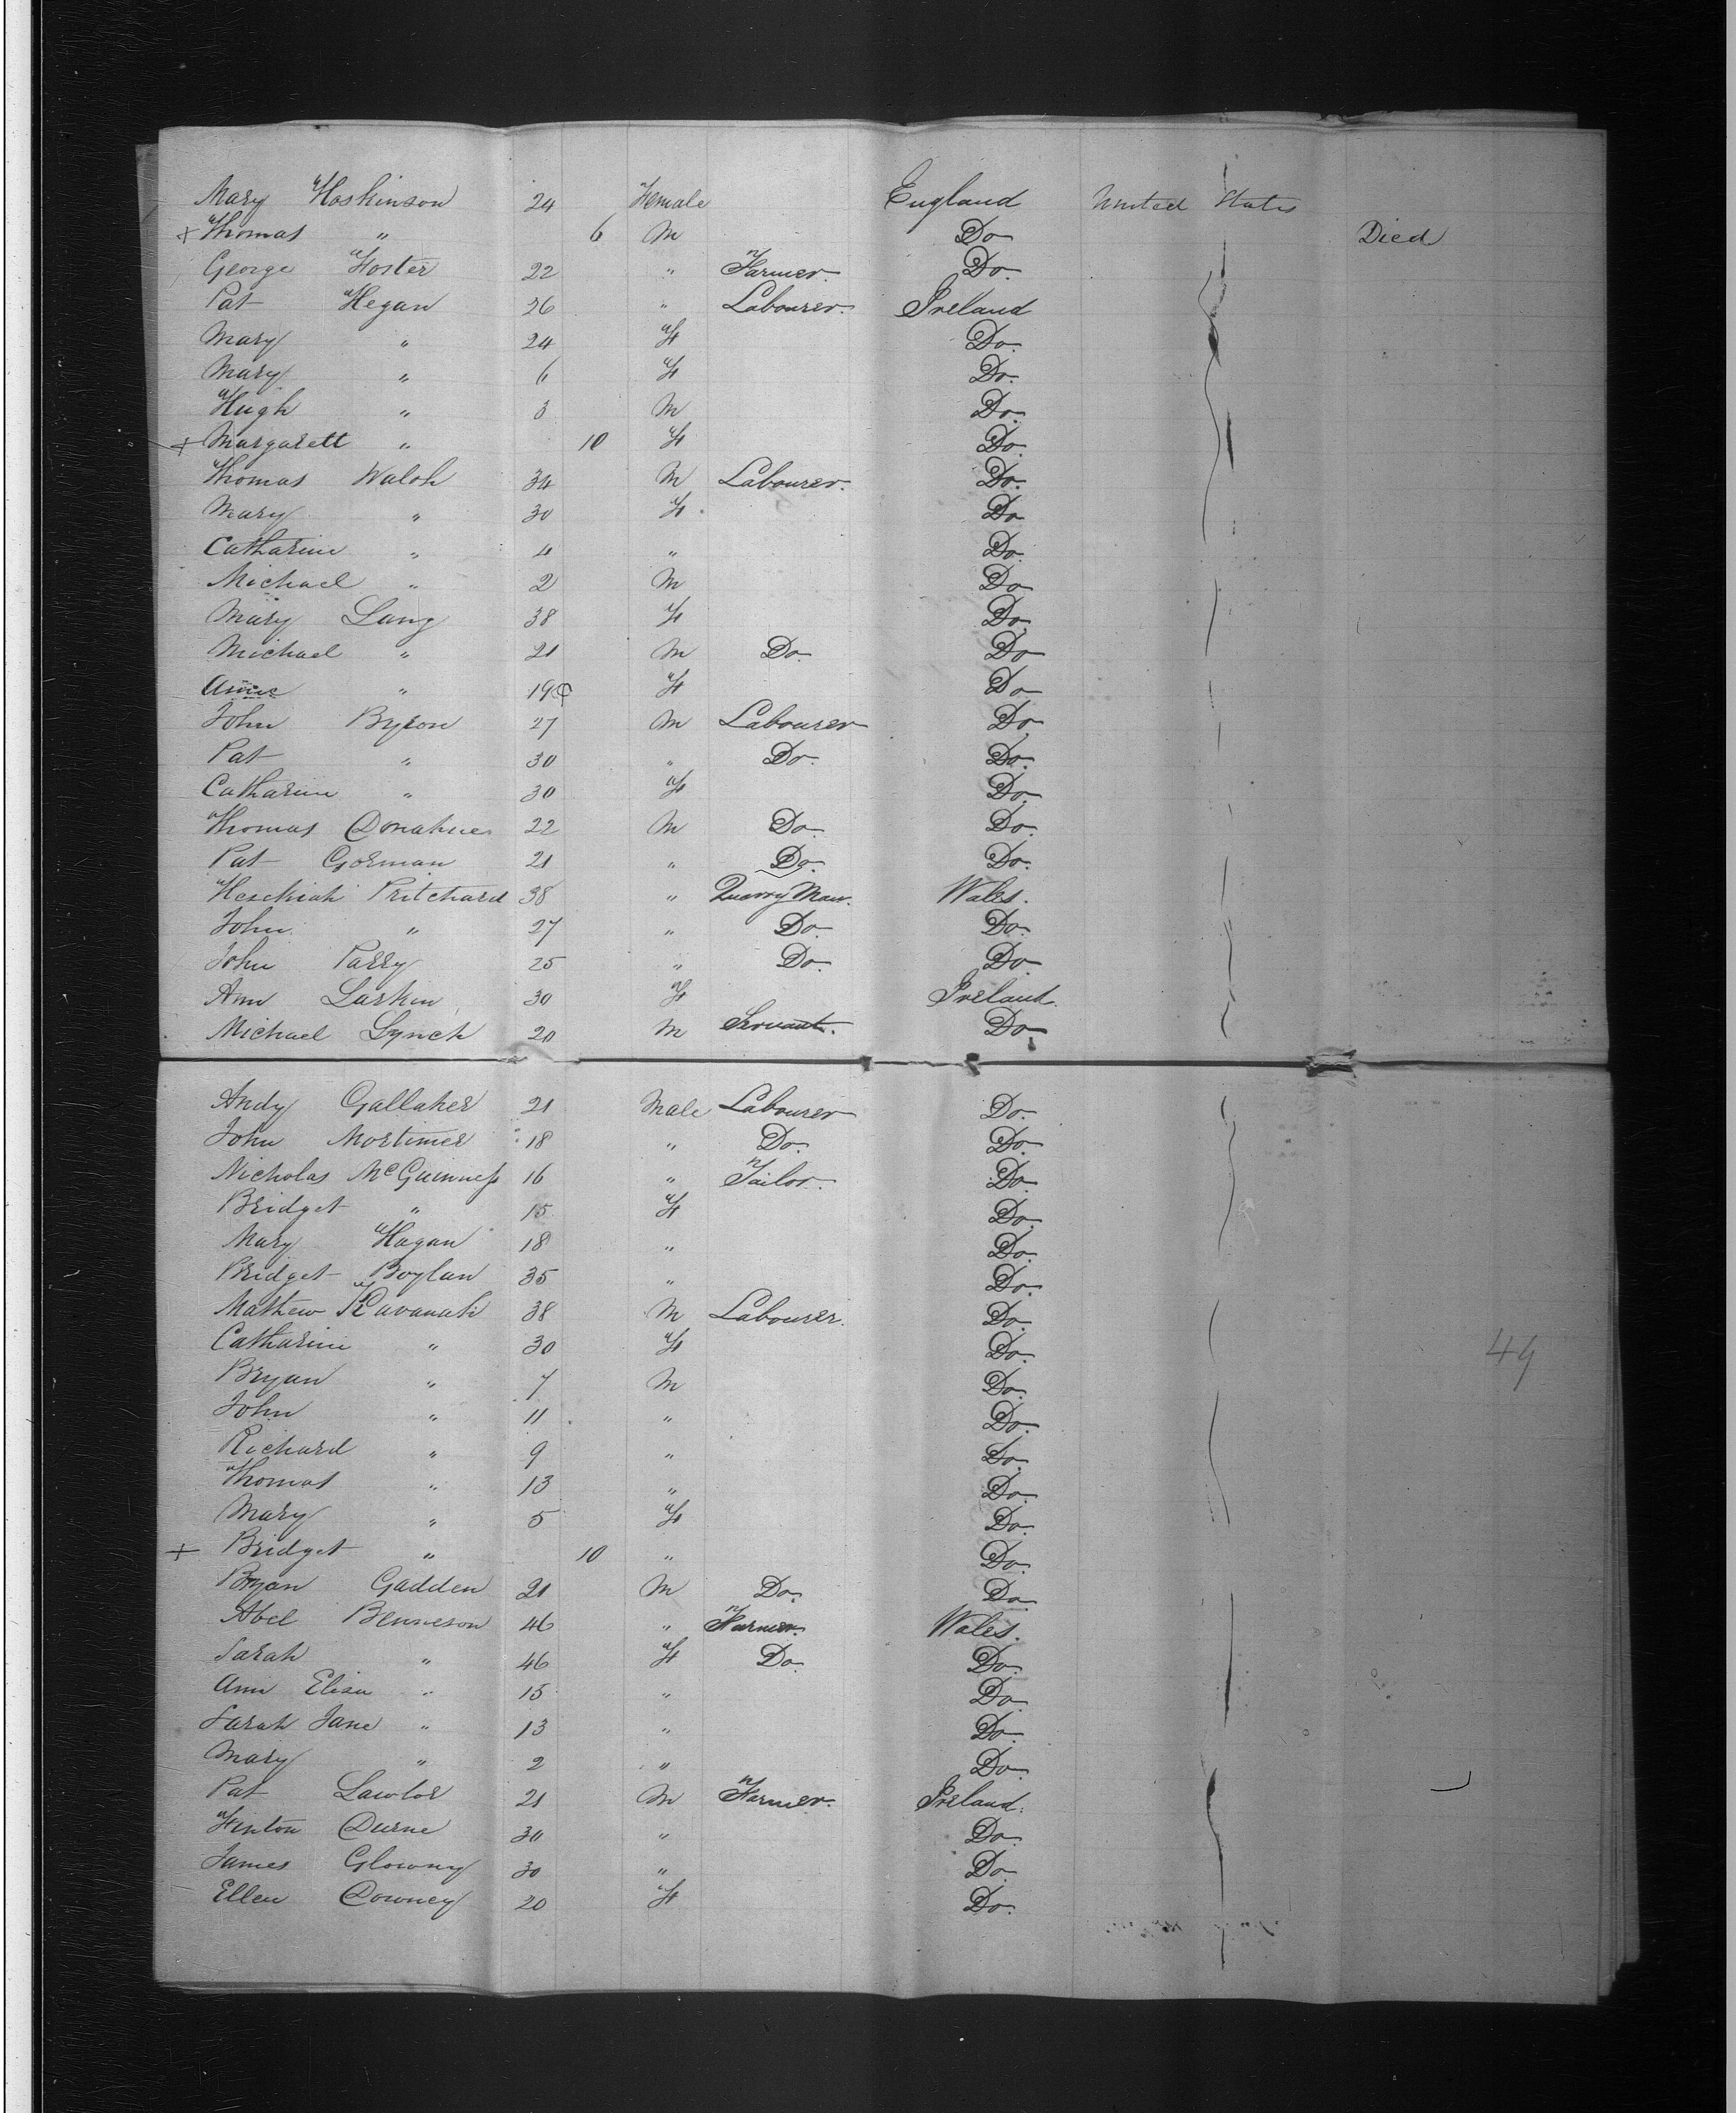 Mary Hoskinson 24 Female England United States
+ Thomas " 6 M Do Died
George Foster 22 " Farmer. Do.
Pat Hegan 26 " Labourer. Ireland
Mary " 24 F Do.
Mary " 6 F Do.
Hugh " 3 M Do.
+ Margarett " 10 F Do.
Thomas Walsh 34 M Labourer. Do.
Mary " 30 F. Do
Catharine " 4 " Do
Michael " 2 M Do
Mary Lang 38 F Do.
Michael " 21 M Do Do
Annie " 19 F Do
John Byron 27 M Labourer Do
Pat " 30 " Do. Do.
Catharine " 30 F Do.
Thomas Donahue 22 M Do. Do.
Pat Gorman 21 " Do. Do.
Heschiah Pritchard 38 " Quarry Man. Wales.
John " 27 " Do. Do.
John Parry 25 " Do. Do
Ann Larkin 30 F Ireland.
Michael Lynch 20 M Servant. Do
Andy Gallaher 21 Male Labourer Do.
John Mortimer 18 " Do. Do.
Nicholas McGuinness 16 " Tailor. Do.
Bridget " 15 F Do.
Mary Hagan 18 " Do.
Bridget Boylan 35 " Do.
Mathew Kavanah 38 M Labourer. Do.
Catharine " 30 F Do.
Bryan " 7 M Do.
John " 11 " Do.
Richard " 9 " Do.
Thomas " 13 " Do.
Mary " 5 F Do.
+ Bridget " 10 " Do.
Bryan Gadden 21 M Do. Do.
Abel Benneson 46 " Farmer. Wales.
Sarah " 46 F Do. Do.
Ann Eliza " 15 " Do.
Sarah Jane " 13 " Do.
Mary " 2 " Do.
Pat Lawlor 21 M Farmer. Ireland.
Finton Durne 30 " Do.
James Glowny 30 " Do.
Ellen Downey 20 F Do.
49